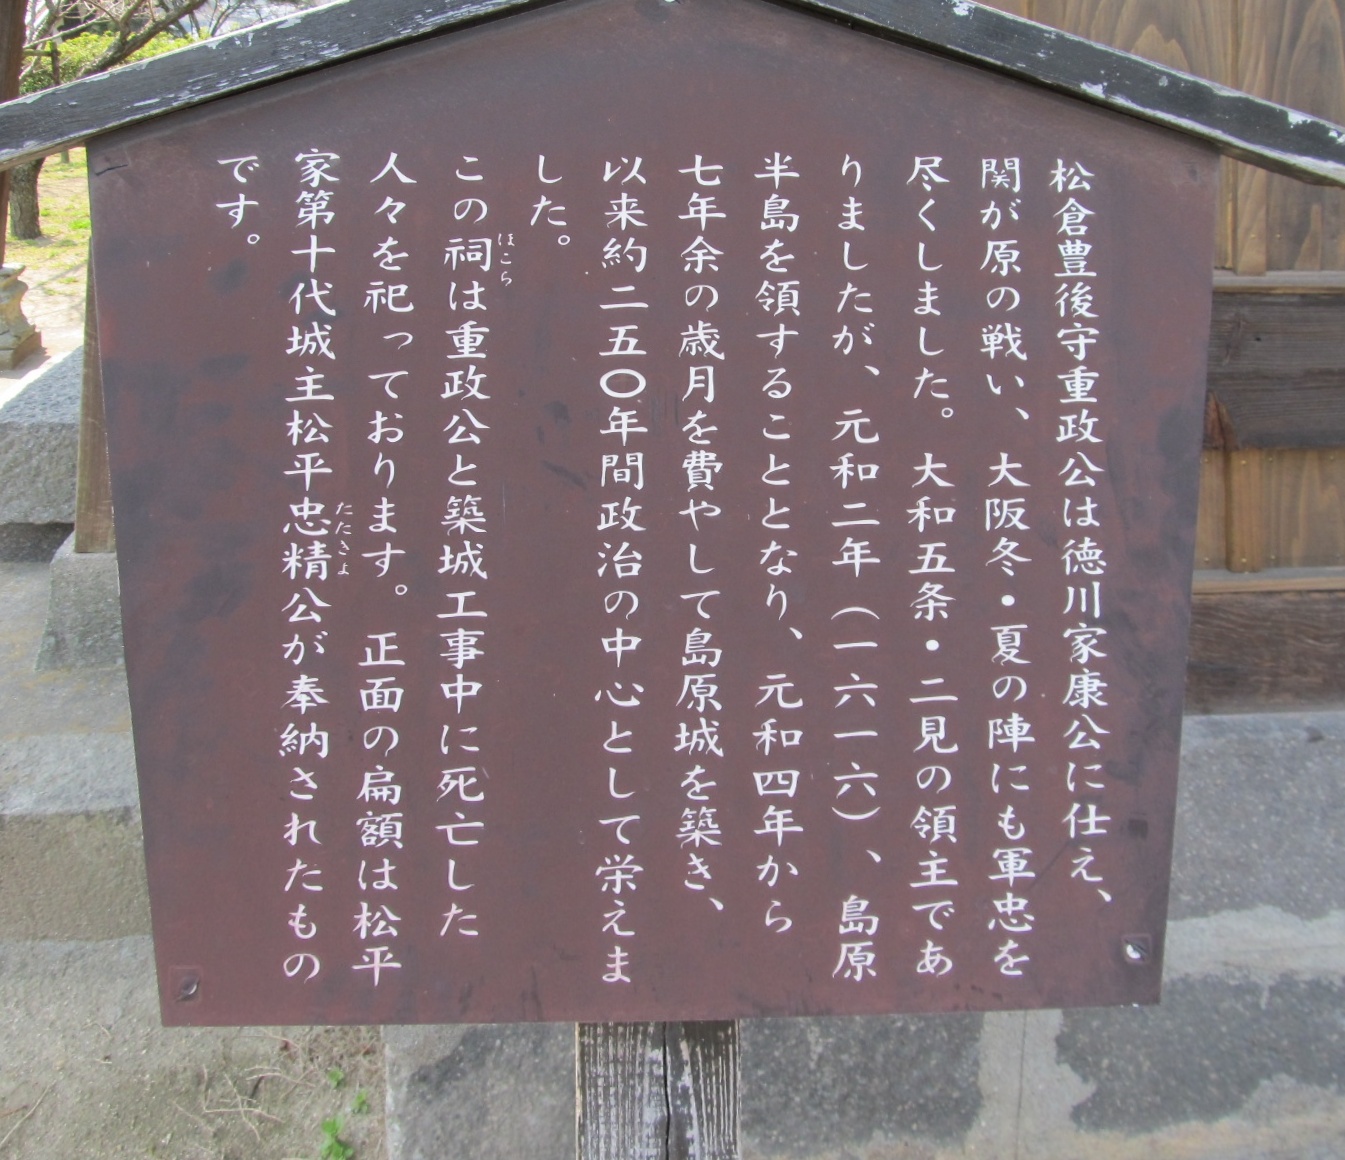 松倉豊後守重政公は徳川家康公に仕え、
関が原の戦い、大阪冬・夏の陣にも軍忠を
尽くしました。大和五条・二見の領主であ
りましたが、元和二年（一六一六）、島原
半島を領することとなり、元和四年から
七年余の歳月を費やして島原城を築き、
以来約二五〇年間政治の中心として栄えま
した。
この祠は重政公と築城工事中に死亡した
ほこら
人々を祀っております。正面の扁額は松平
家第十代城主松平忠精公が奉納されたもの
たたきよ
です。